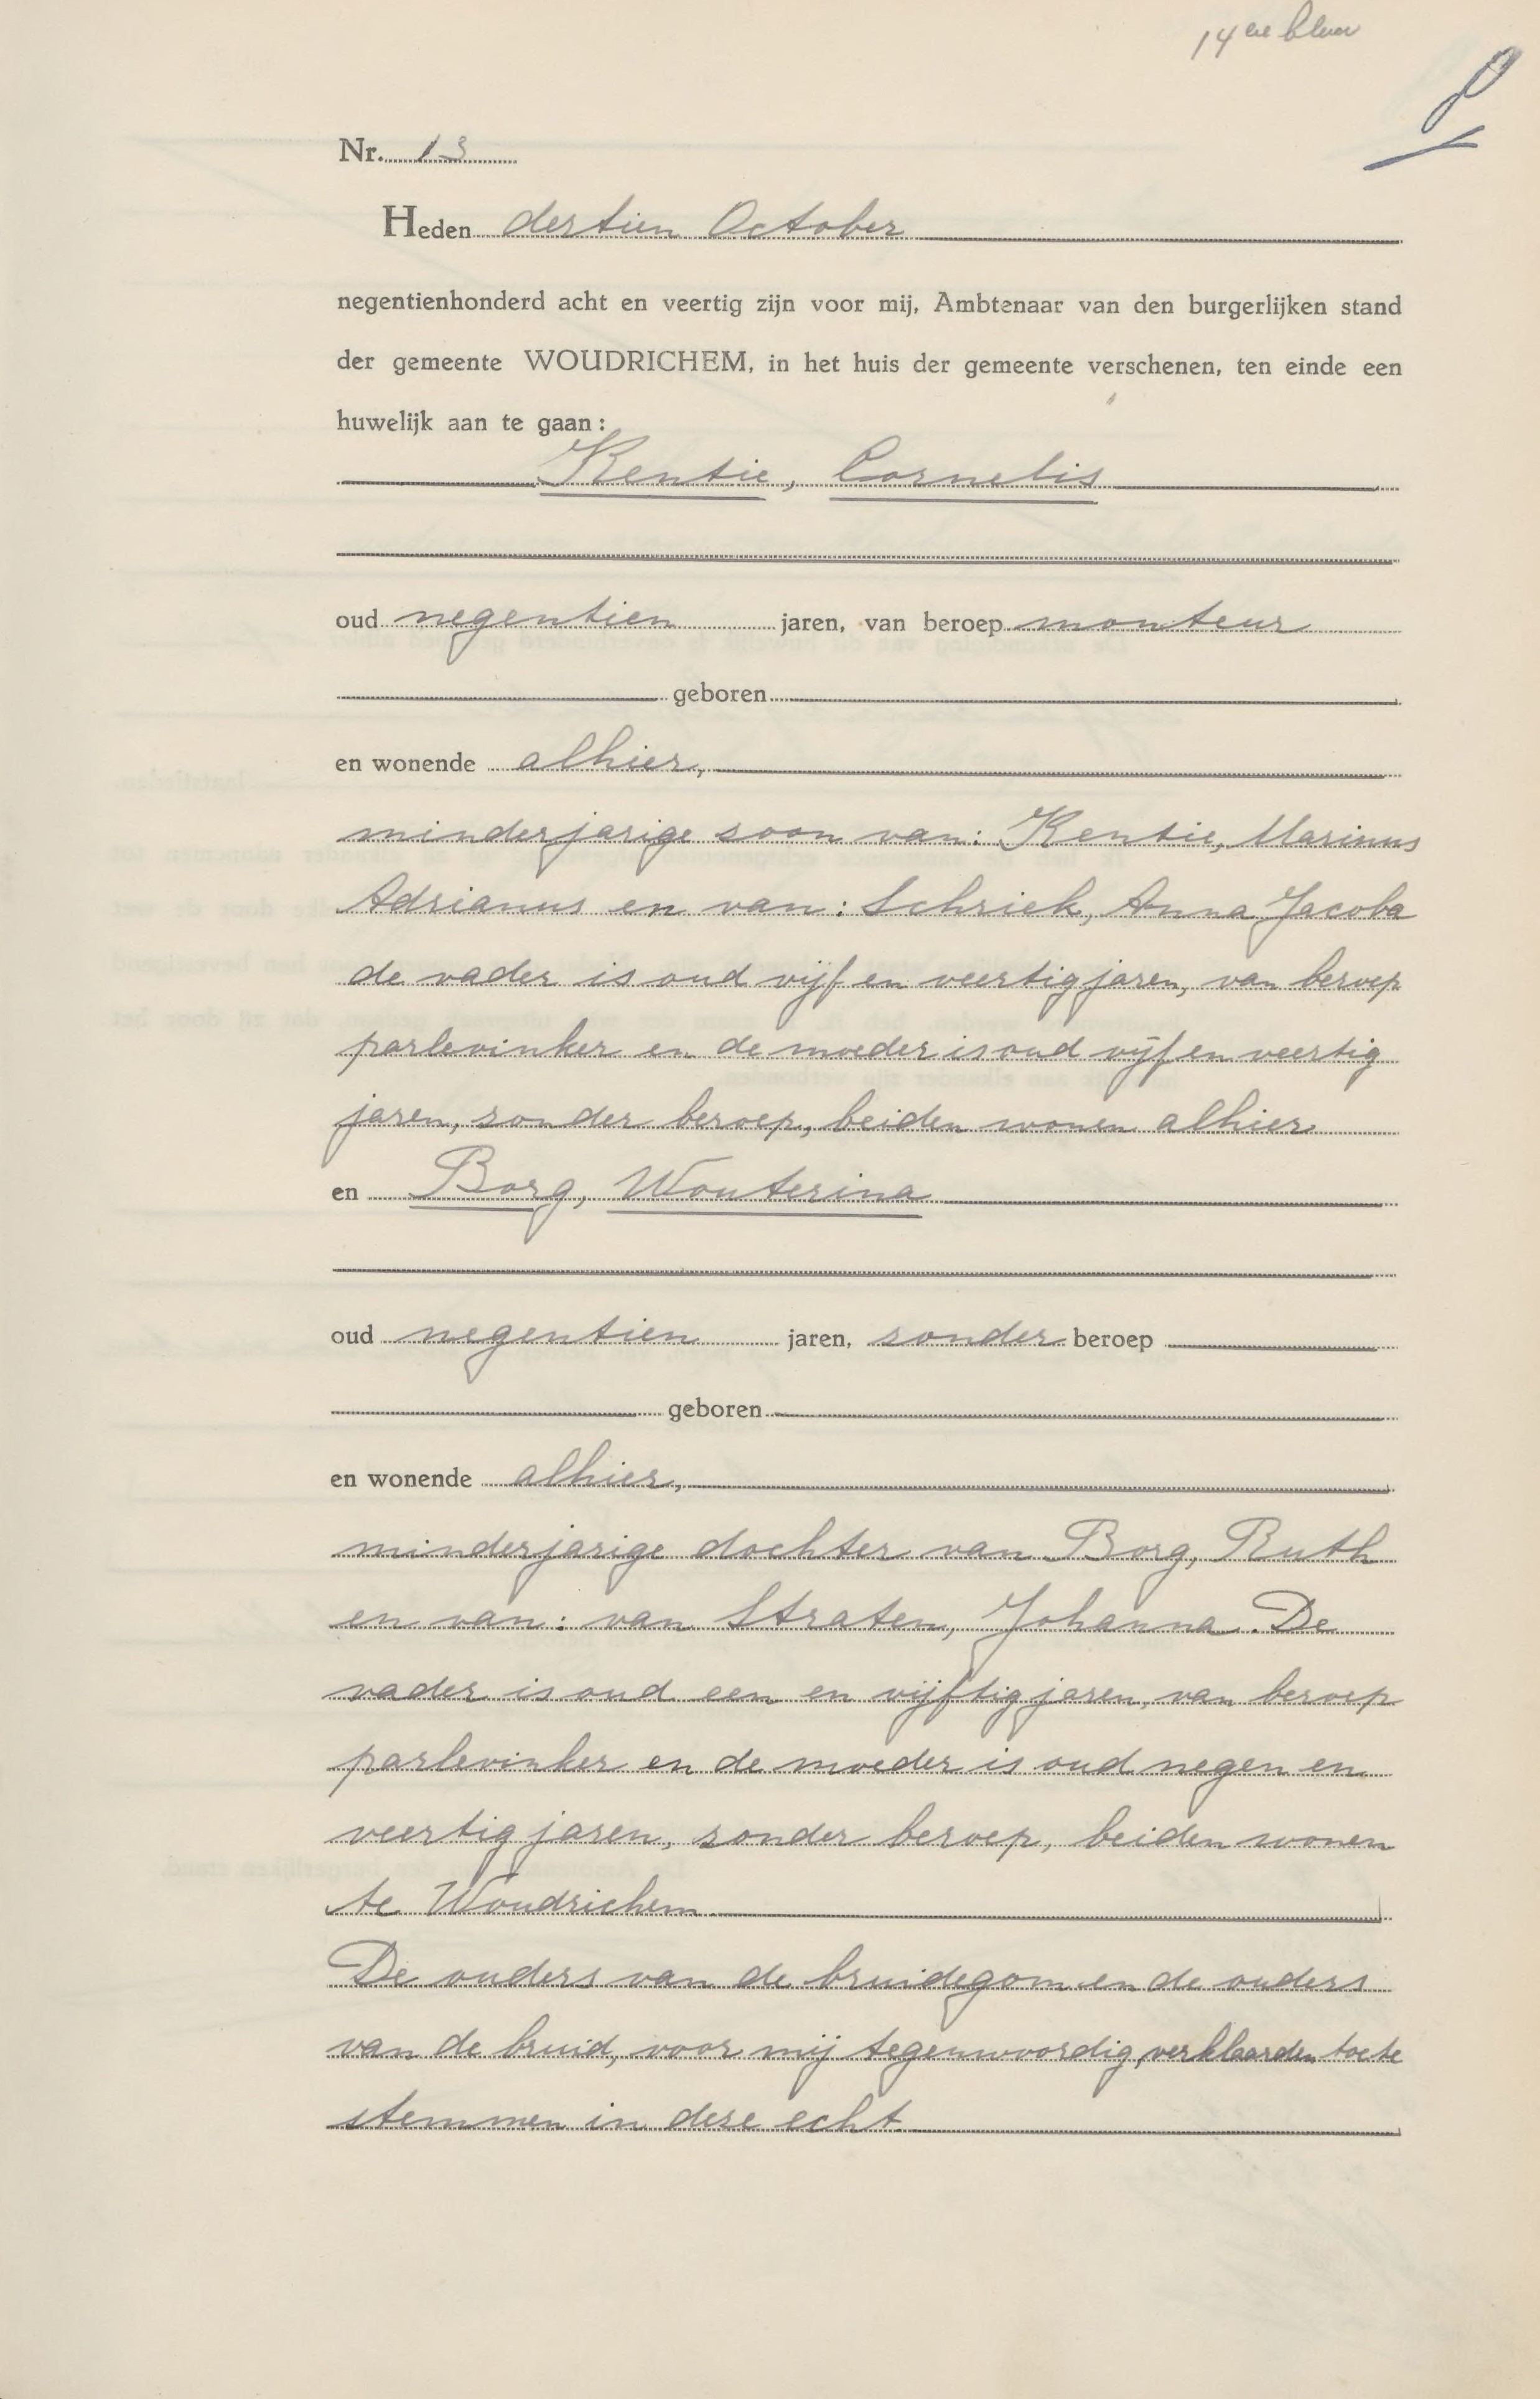 Nr. 13
Heden dertien October
negentienhonderd acht en veertig zijn voor mij, Ambtenaar van den burgerlijken stand
der gemeente WOUDRICHEM, in het huis der gemeente verschenen, ten einde een
huwelijk aan te gaan:
Kentie, Cornelis
oud negentien jaren, van beroep monteur
geboren
en wonende alhier,
minderjarige zoon van: Kentie, Marinus
Adrianus en van: Schriek, Anna Jacoba
de vader is oud vijf en veertig jaren, van beroep
parlevinker en de moeder is oud vijf en veertig
jaren, zonder beroep, beiden wonen alhier
en Borg, Wouterina
oud negentien jaren, zonder beroep
geboren
en wonende alhier,
minderjarige dochter van Borg, Ruth
en van: van Straten, Johanna. De
vader is oud een en vijftig jaren, van beroep
parlevinker en de moeder is oud negen en
veertig jaren, zonder beroep, beiden wonen
te Woudrichem.
De ouders van de bruidegom en de ouders
van de bruid, voor mij tegenwoordig, verklaarden toe te
stemmen in deze echt.